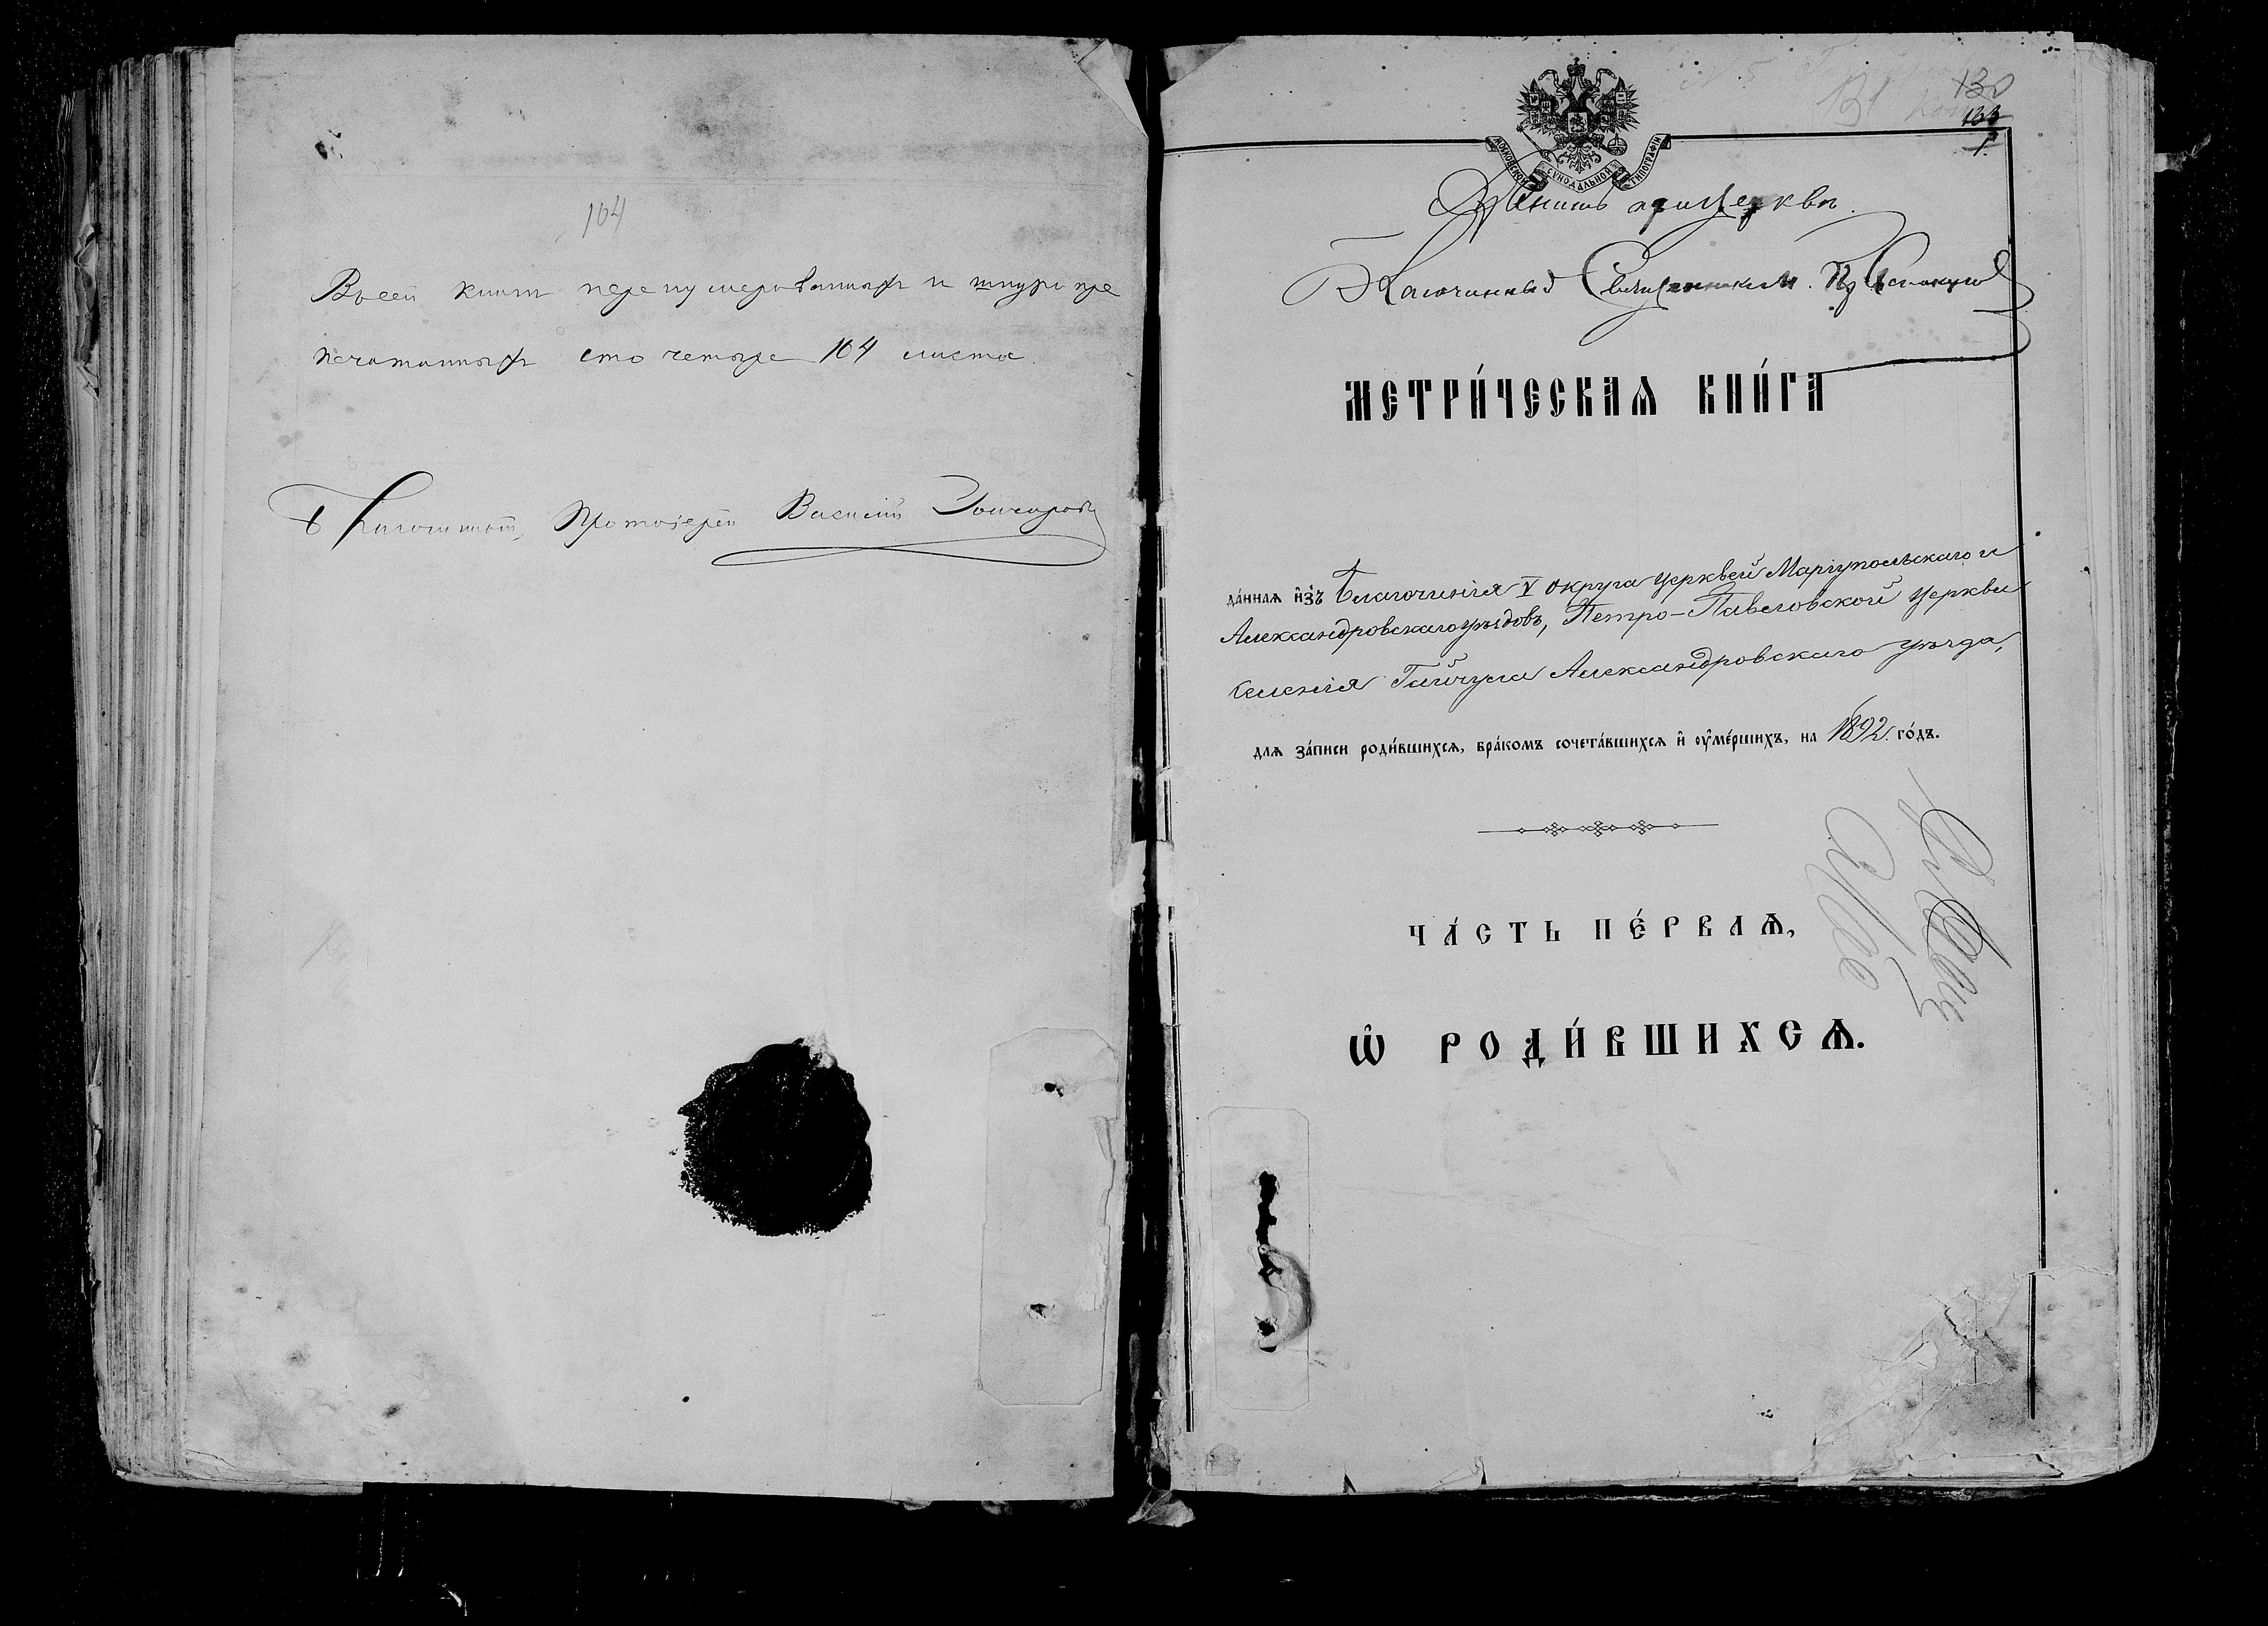 104
Въ сей книгѣ перенумерованныхъ и шнуропре
печатанныхъ сто четыре 104 листа.
Благочинный, Протоіерей Василій
130
131
133
1.
МОСКОВСКОЙ СѴНОДАЛЬНОЙ ТИПОГРАФІИ
Хранить при Церкви.
Благочинный Священникъ
МЕТРИ́ЧЕСКАѦ КНИ́ГА
да́ннаѧ и҆зъ Благочинія V округа церквей Маріупольскаго и
Александровскаго уѣздовъ, Петро-Павловской церкви
селенія Гайчула Александровскаго уѣзда,
длѧ за́писи роди́вшихсѧ, бра́комъ сочета́вшихсѧ и҆ ᲂу҆ме́ршихъ, на 1892 го́дъ.
ЧА́СТЬ ПЕ́РВАѦ,
Ѡ҆ РОДИ́ВШИХСѦ.